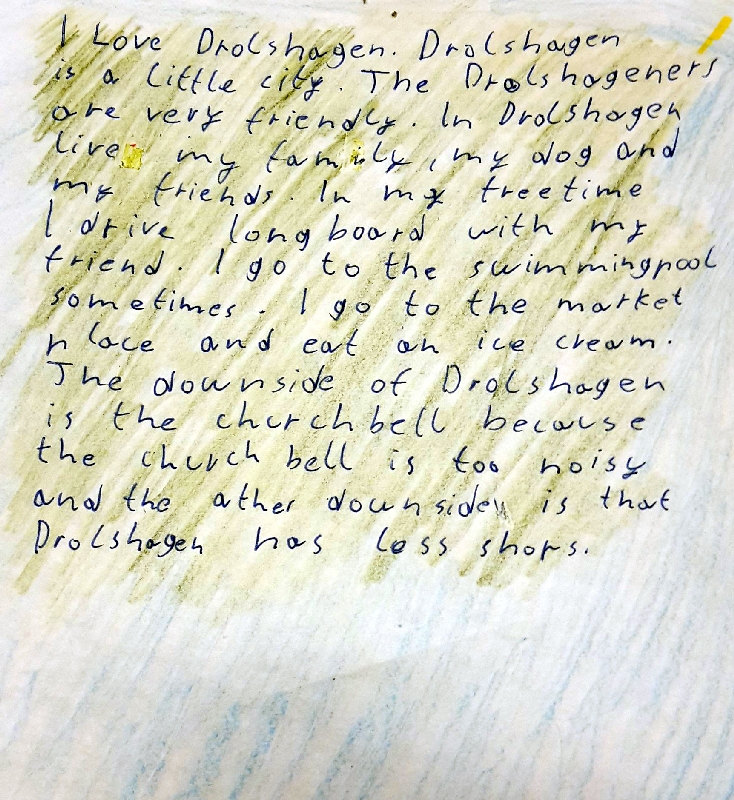 I Love Drolshagen. Drolshagen
is a little city. The Drolshageners
are very friendly. In Drolshagen
live my family, my dog and
my friends. In my freetime
I drive longboard with my
friend. I go to the swimmingpool
sometimes. I go to the market
place and eat an ice cream.
The downside of Drolshagen
is the church bell because
the church bell is too noisy
and the ather downside is that
Drolshagen has less shops.